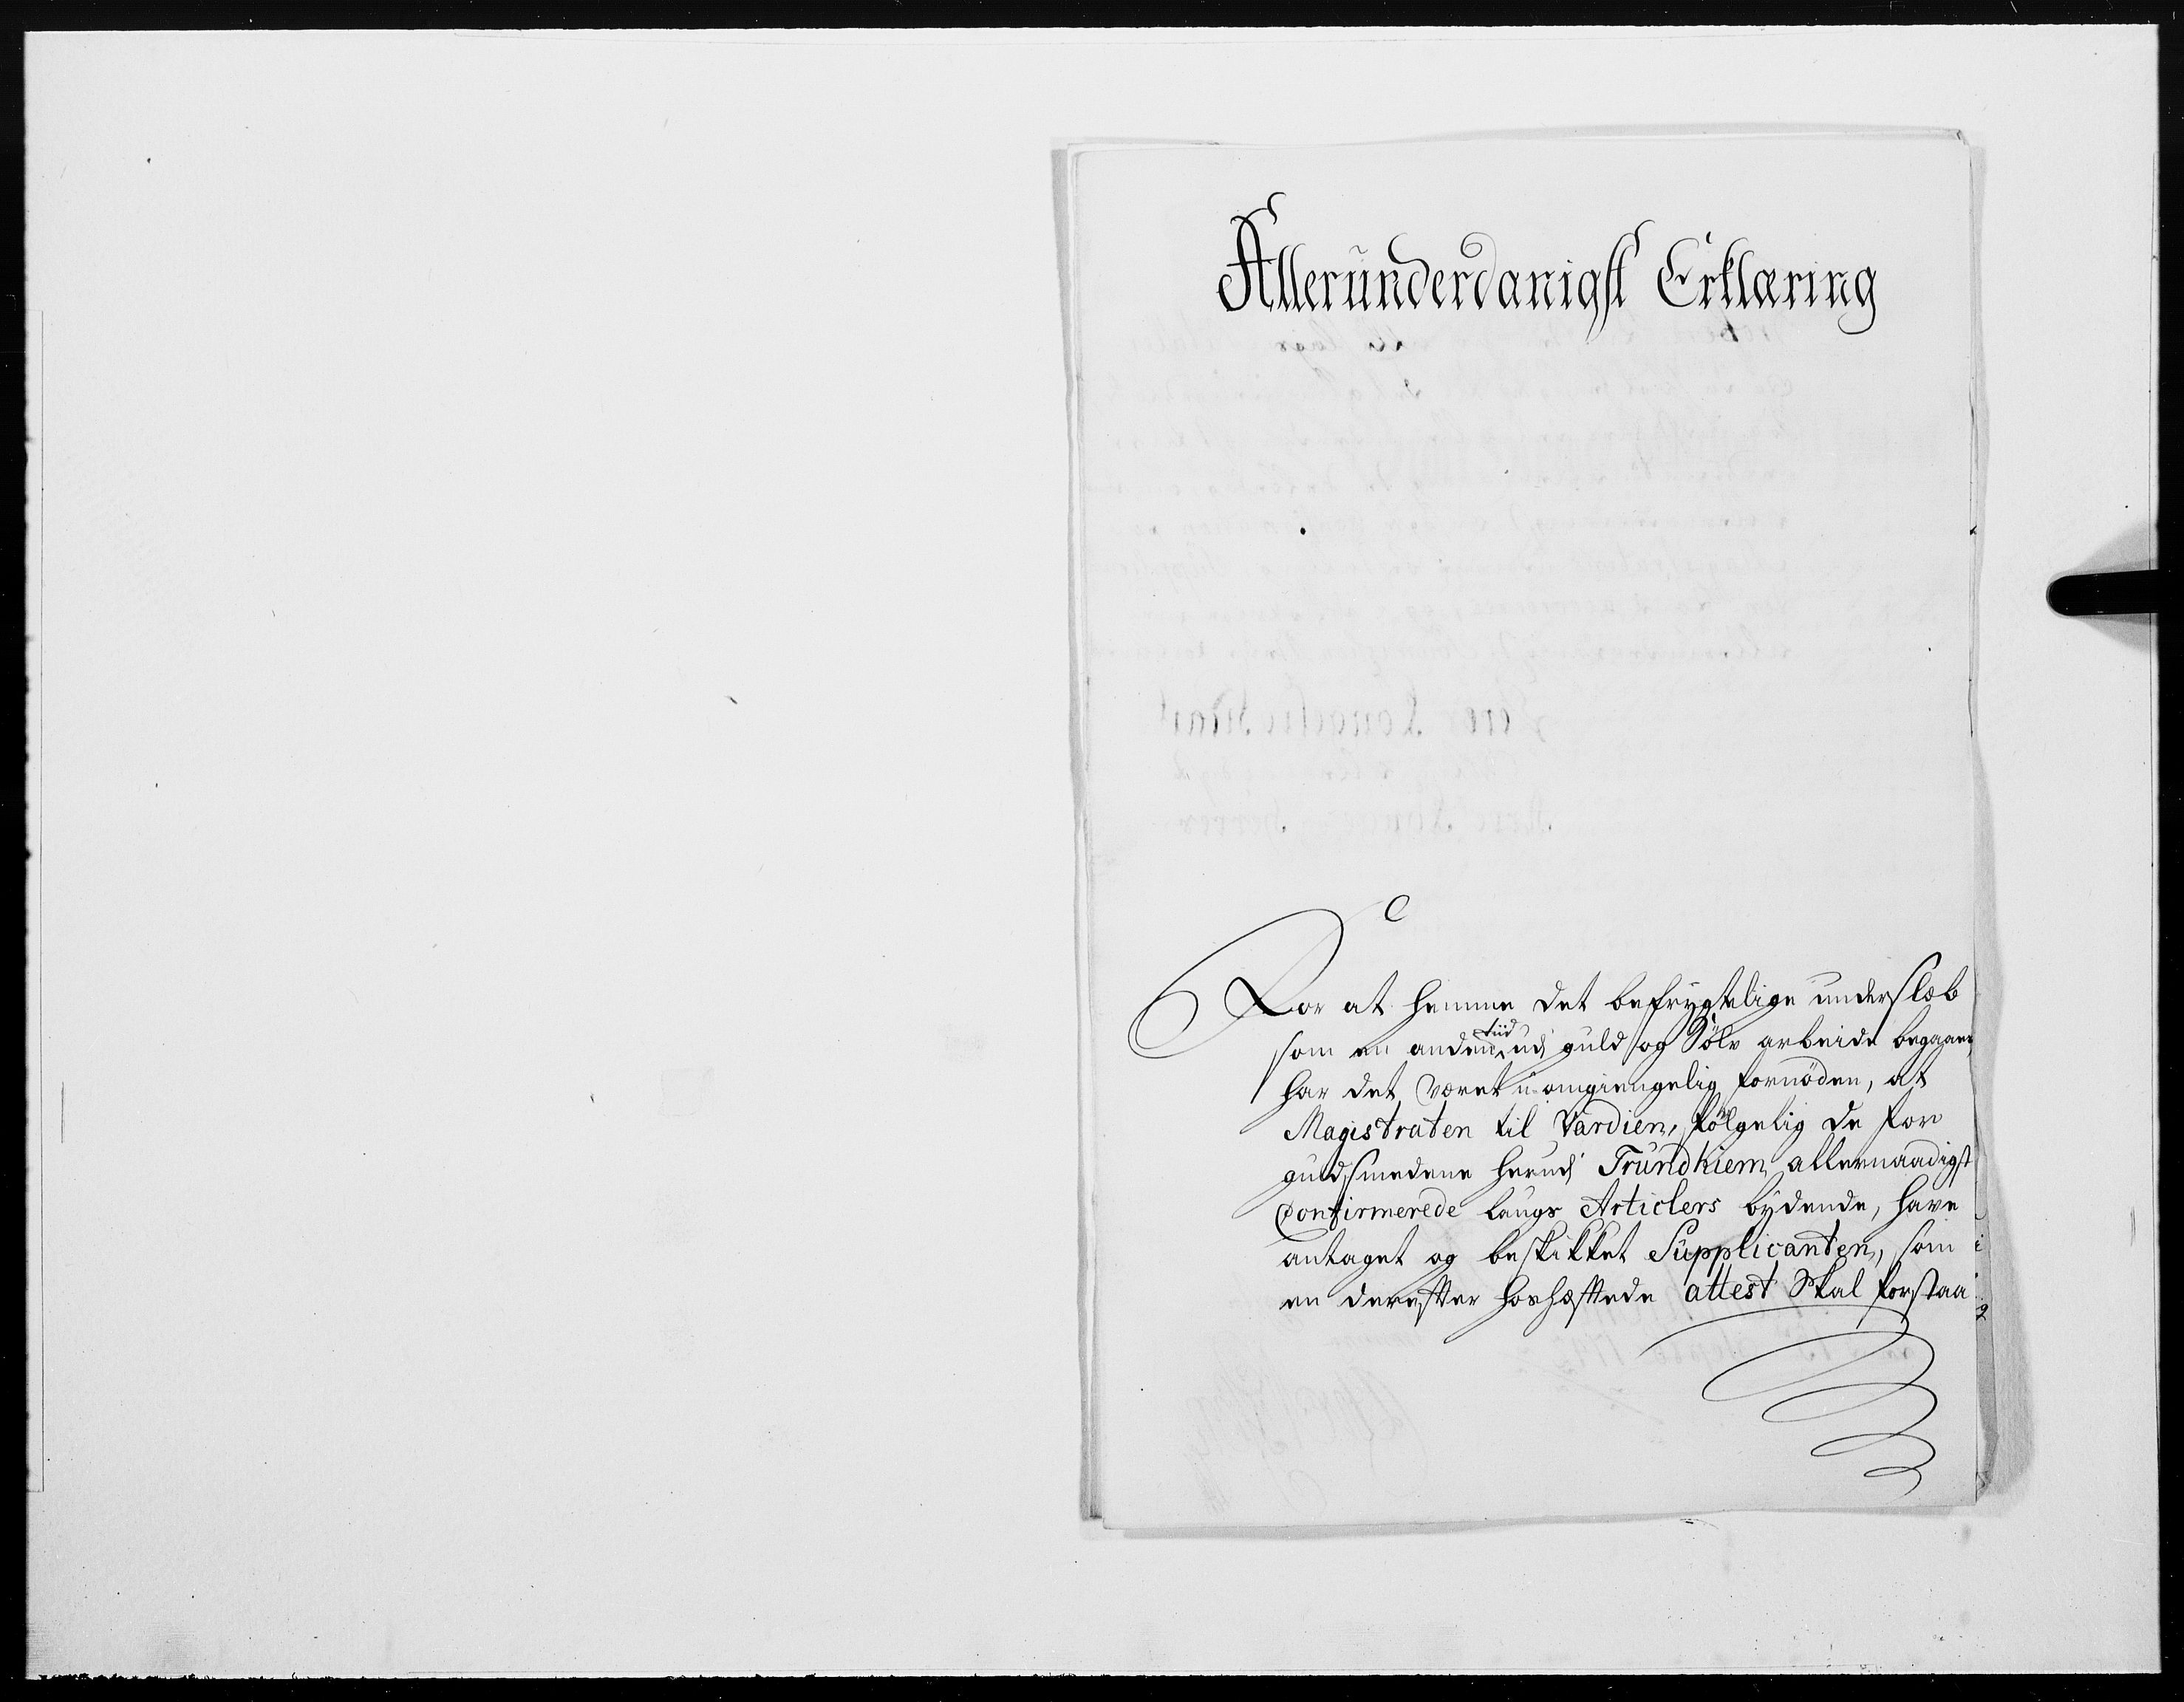 Allerunderdanigst Erklæring
For at hemme det befrygtelige underslæb
som en anden tiid udj guld og Sölv arbeide begaaes,
har det været u-omgiengelig fornöden, at
Magistraten til Vardien, fölgelig de for
guldsmedene herudj Trundhiem allernaadigst
Confirmerede laugs Articlers bydende, have
antaget og beskikket Supplicanten, som
en derefter hoshæftede attest Skal forstaa